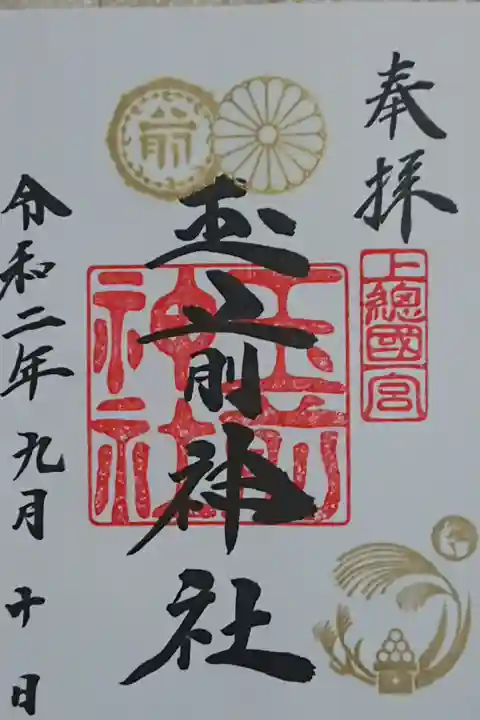 奉拝
上總國一宮
玉前
神社
前
玉前神社
令和二年九月十日